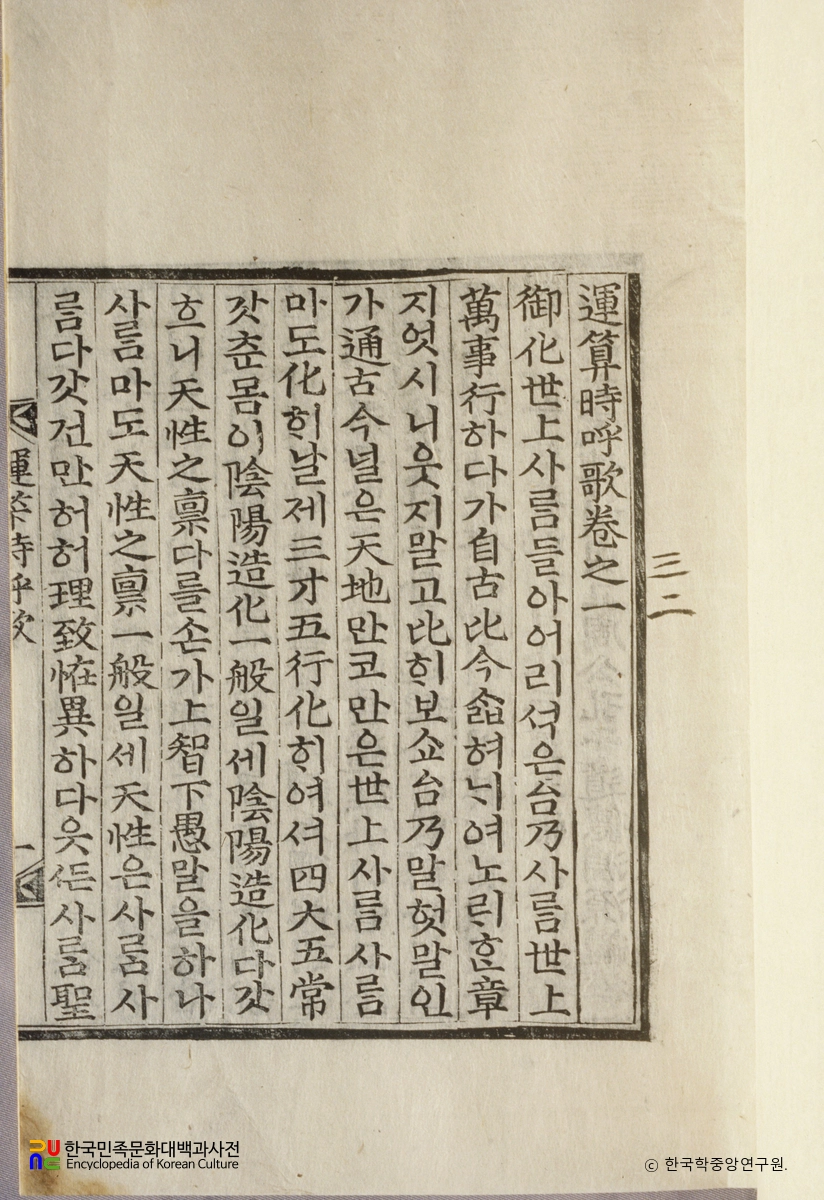 運算時呼歌卷之一
御化世上사ᄅᆞᆷ들아어리셕은台乃사ᄅᆞᆷ世上
萬事行하다가自古比今ᄒᆞ여ᄂᆡ여노ᄅᆡᄒᆞᆫ章
지엇시니웃지말고比ᄒᆡ보쇼台乃말헛말인
가通古今널은天地만코만은世上사ᄅᆞᆷ사ᄅᆞᆷ
마도化ᄒᆡ날제三才五行化ᄒᆡ여셔四大五常
갓춘몸이陰陽造化一般일세陰陽造化다갓
흐니天性之禀다를손가上智下愚말을하나
사ᄅᆞᆷ마도天性之禀一般일세天性은사ᄅᆞᆷ사
ᄅᆞᆷ다갓건만허허理致恠異하다웃든사ᄅᆞᆷ聖
運算時呼歌
一
三二
한국민족문화대백과사전
Encyclopedia of Korean Culture
© 한국학중앙연구원.